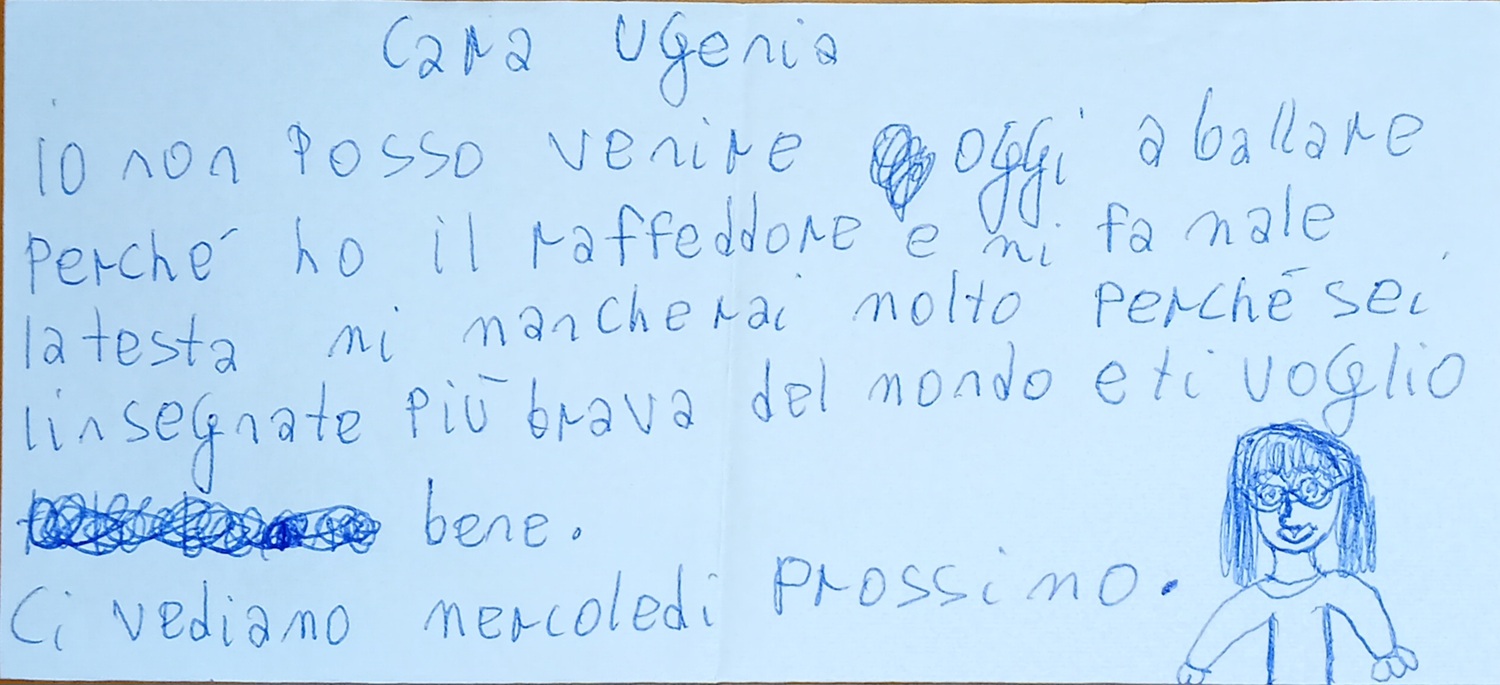 Cara Ugenia
io non posso venire oggi a ballare
perché ho il raffeddore e mi fa male
la testa mi mancherai molto perché sei
linsegnate più brava del mondo e ti voglio
bene.
Ci vediamo mercoledi prossimo.